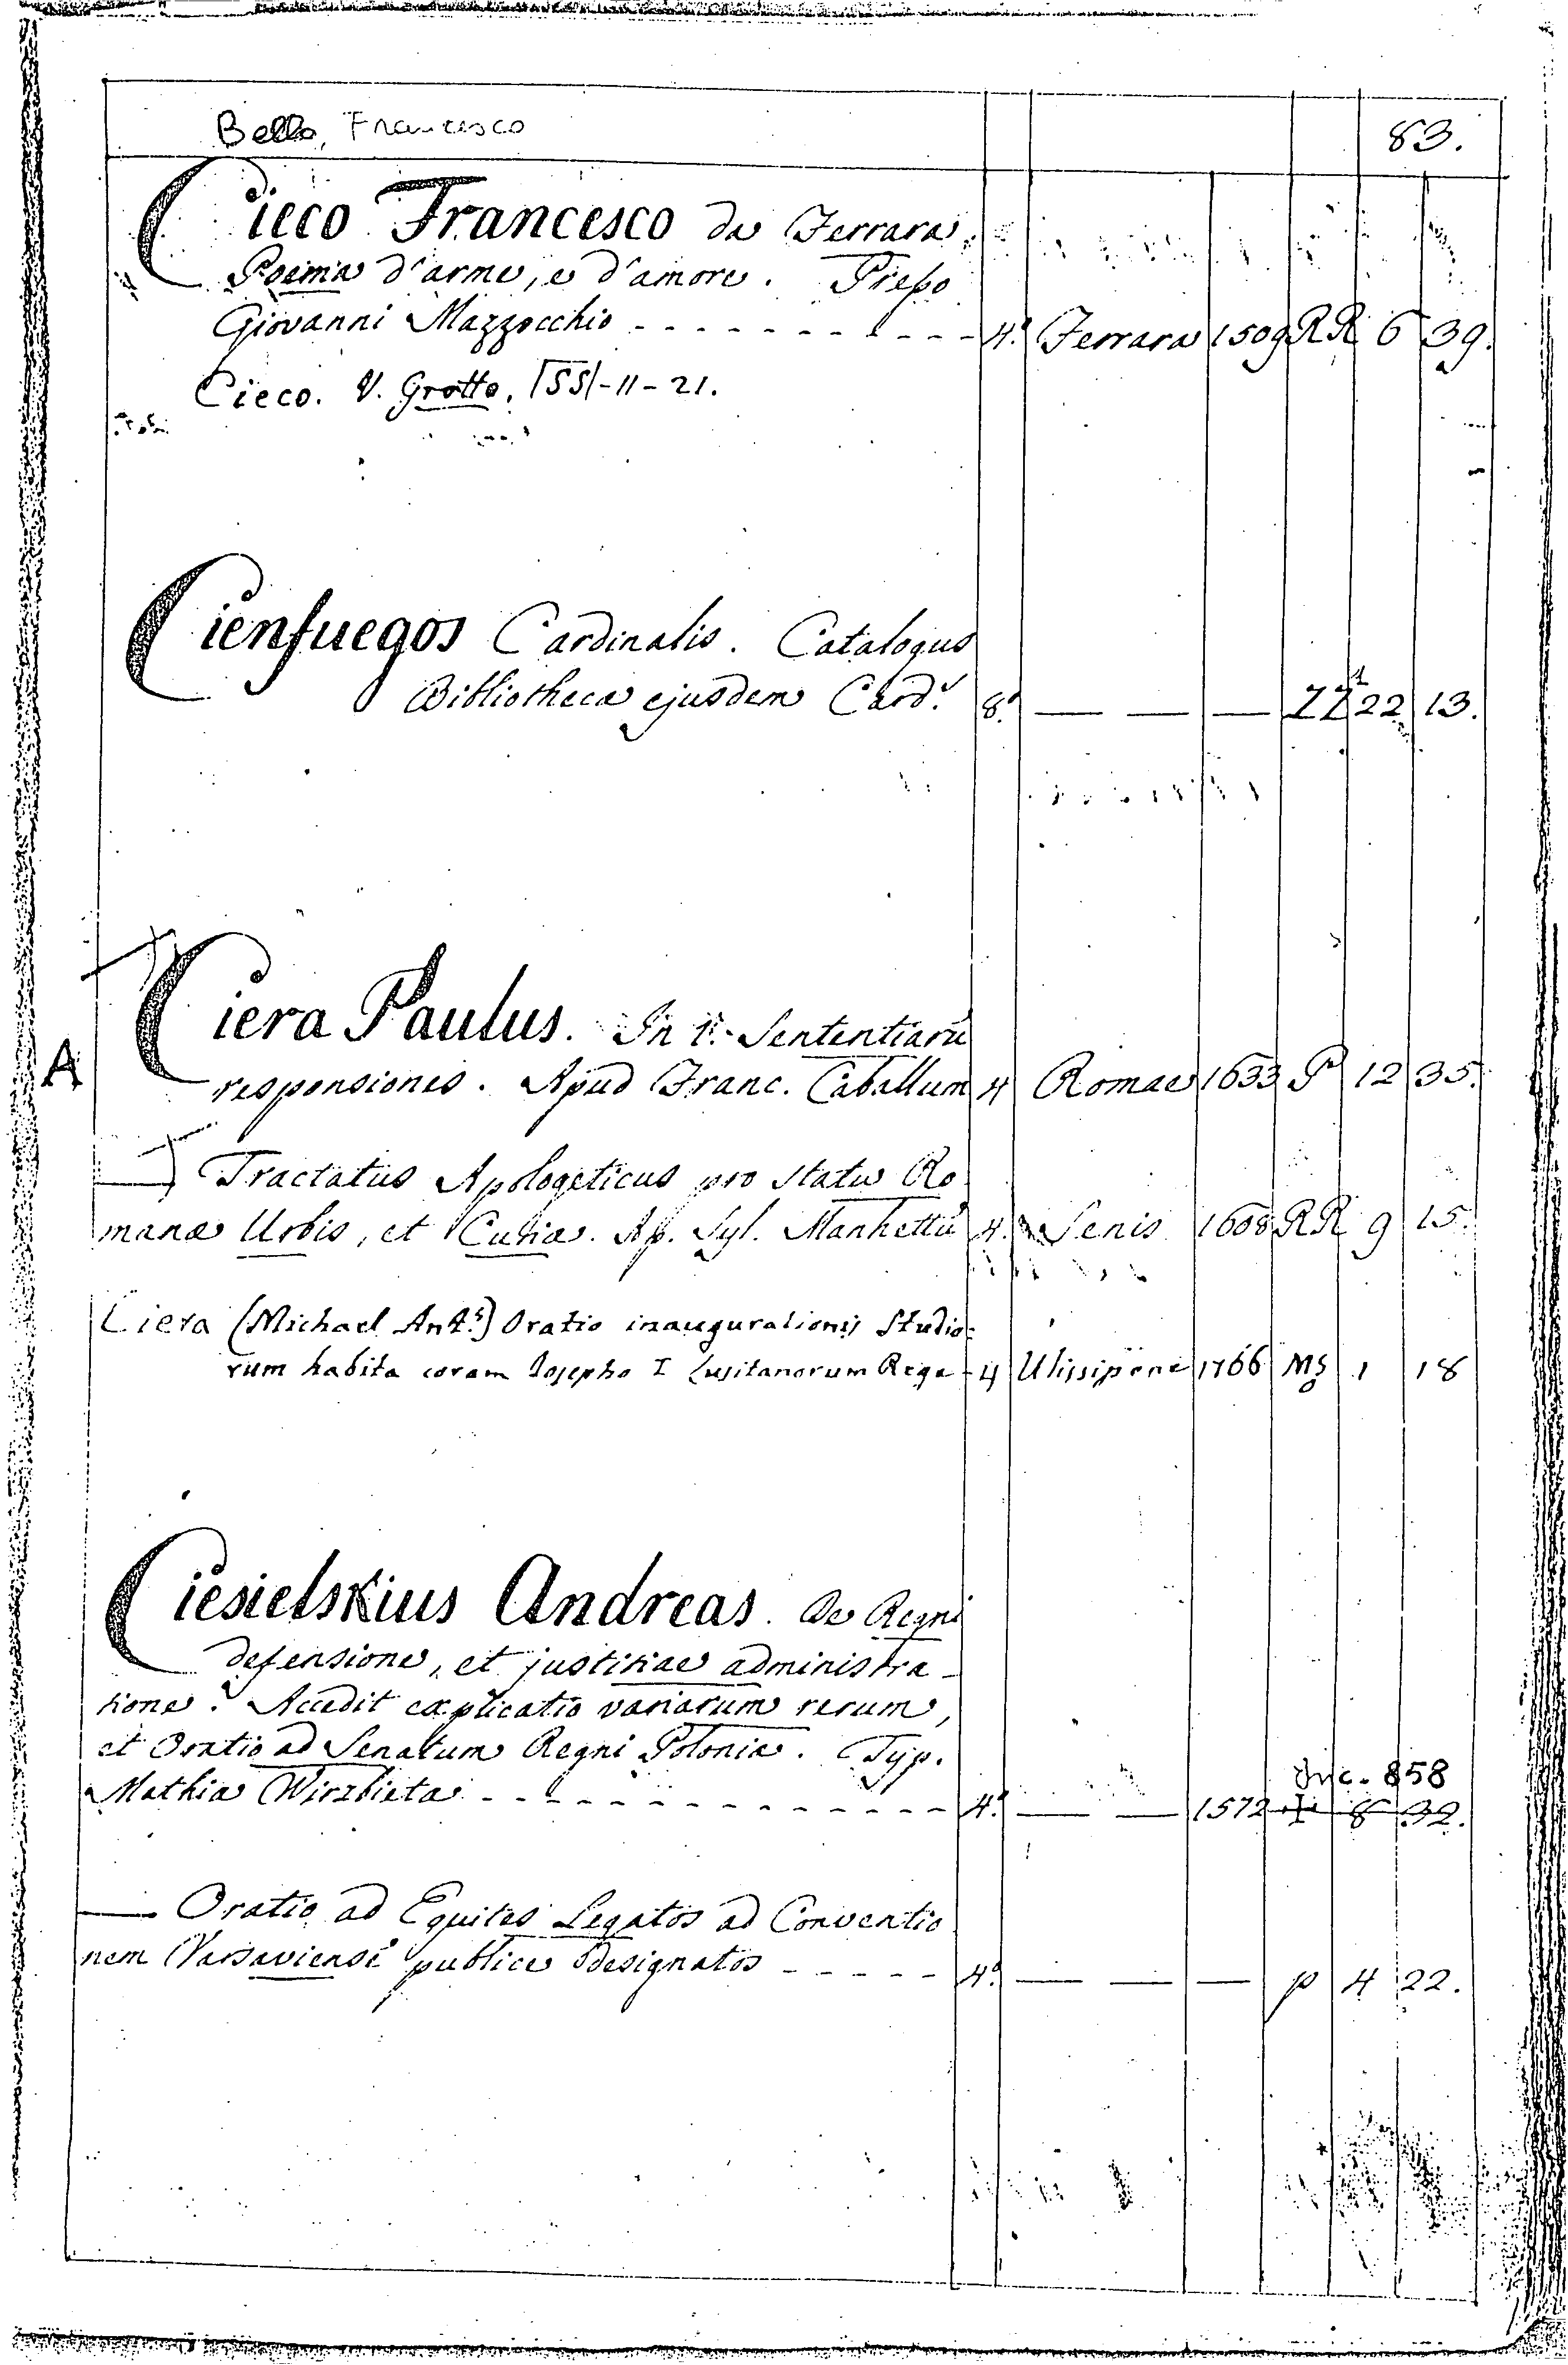 Bello, Francesco 83.
Cieco Francesco da Ferrara.
Poema d'arme, e d'amore. Presso
Giovanni Mazzocchio - - - - - - - - - 4.º Ferrara 1509 RR 6 39.
Cieco. V. Grotto, |SS|-11-21.
Cienfuegos Cardinalis. Catalogus
Bibliotheca ejusdem Card. 8.º — — — ZZ 22 13.
Ciera Paulus. In 1.m Sententiarũ
A
responsiones. Apud Franc. Caballum 4 Romae 1633 P 12 35.
— Tractatus Apologeticus pro statu Ro
mana Urbis, et Curia. Ap. Syl. Manhettũ 4.º Senis 1608 RR 9 15.
Ciera (Michael Ant.s) Oratio inaugurationis Studio:
rum habita coram Josepho I Lusitanorum Rege - 4 Ulissipone 1766 MS 1 18
Ciesielskius Andreas. De Regni
defensione, et justitiae administra-
tione. Accedit explicatio variarum rerum,
et Oratio ad Senatum Regni Polonia. Typ.
Inc. 858
Mathia Wirzbieta - - - - - - - - - - - - - - 4.º — — 1572 ‡ 8 32.
— Oratio ad Equites Legatos ad Conventio
nem Varsaviensẽ publice designatos - - - - - 4.º — — — p 4 22.